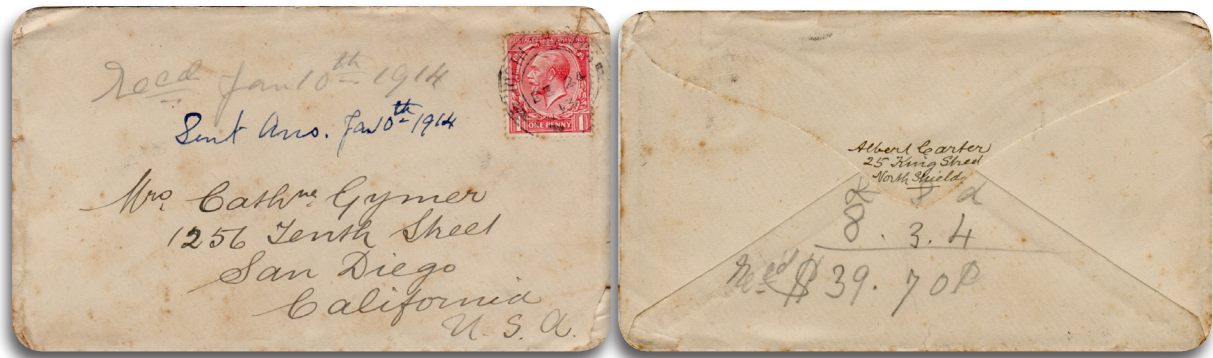 Recd Jan 10th 1914
Sent Ans. Jan 10th 1914
ONE PENNY
Mrs. Cathne Gymer
1256 Tenth Street
San Diego
California
U. S. A.
Albert Carter
25 King Street
North Shields
£ s d
8. 3. 4
Recd $39.70